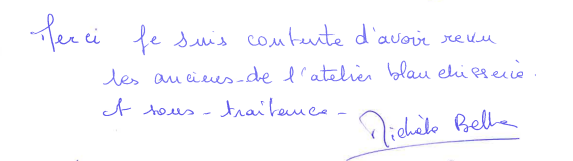 Merci je suis contente d'avoir revu
les anciens - de l'atelier blanchisserie.
et sous - traitance -
Michèle